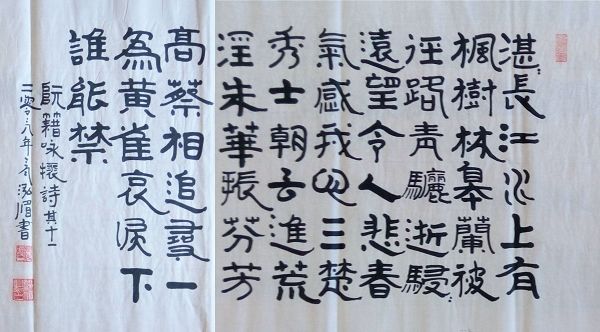 湛〻長江水上有
楓樹林皋蘭被
徑路青驪逝駸〻
遠望令人悲春
氣感我心三楚
秀士朝云進荒
淫朱華振芬芳
高蔡相追尋一
為黃雀哀淚下
誰能禁
阮籍咏懷詩其十一
二零一八年冬書